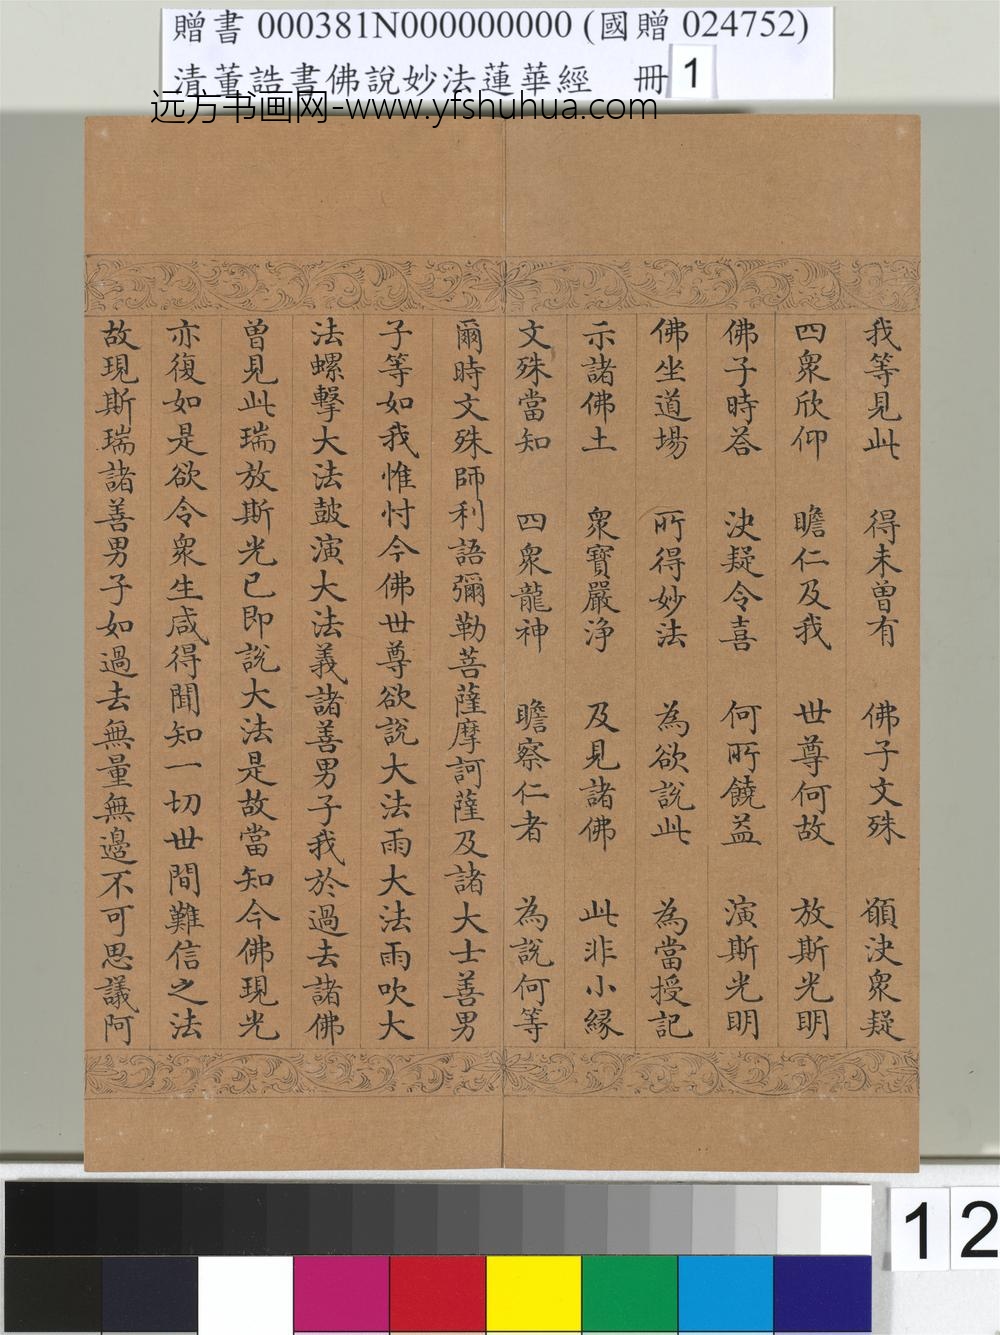 贈書 000381N000000000 (國贈 024752)
清董誥書佛說妙法蓮華經 冊 1
远方书画网-www.yfshuhua.com
我等見此 得未曾有 佛子文殊 願決衆疑
四衆欣仰 瞻仁及我 世尊何故 放斯光明
佛子時答 決疑令喜 何所饒益 演斯光明
佛坐道場 所得妙法 為欲說此 為當授記
示諸佛土 衆寶嚴淨 及見諸佛 此非小緣
文殊當知 四衆龍神 瞻察仁者 為說何等
爾時文殊師利語彌勒菩薩摩訶薩及諸大士善男
子等如我惟忖今佛世尊欲說大法雨大法雨吹大
法螺擊大法鼓演大法義諸善男子我於過去諸佛
曾見此瑞放斯光已即說大法是故當知今佛現光
亦復如是欲令衆生咸得聞知一切世間難信之法
故現斯瑞諸善男子如過去無量無邊不可思議阿
12